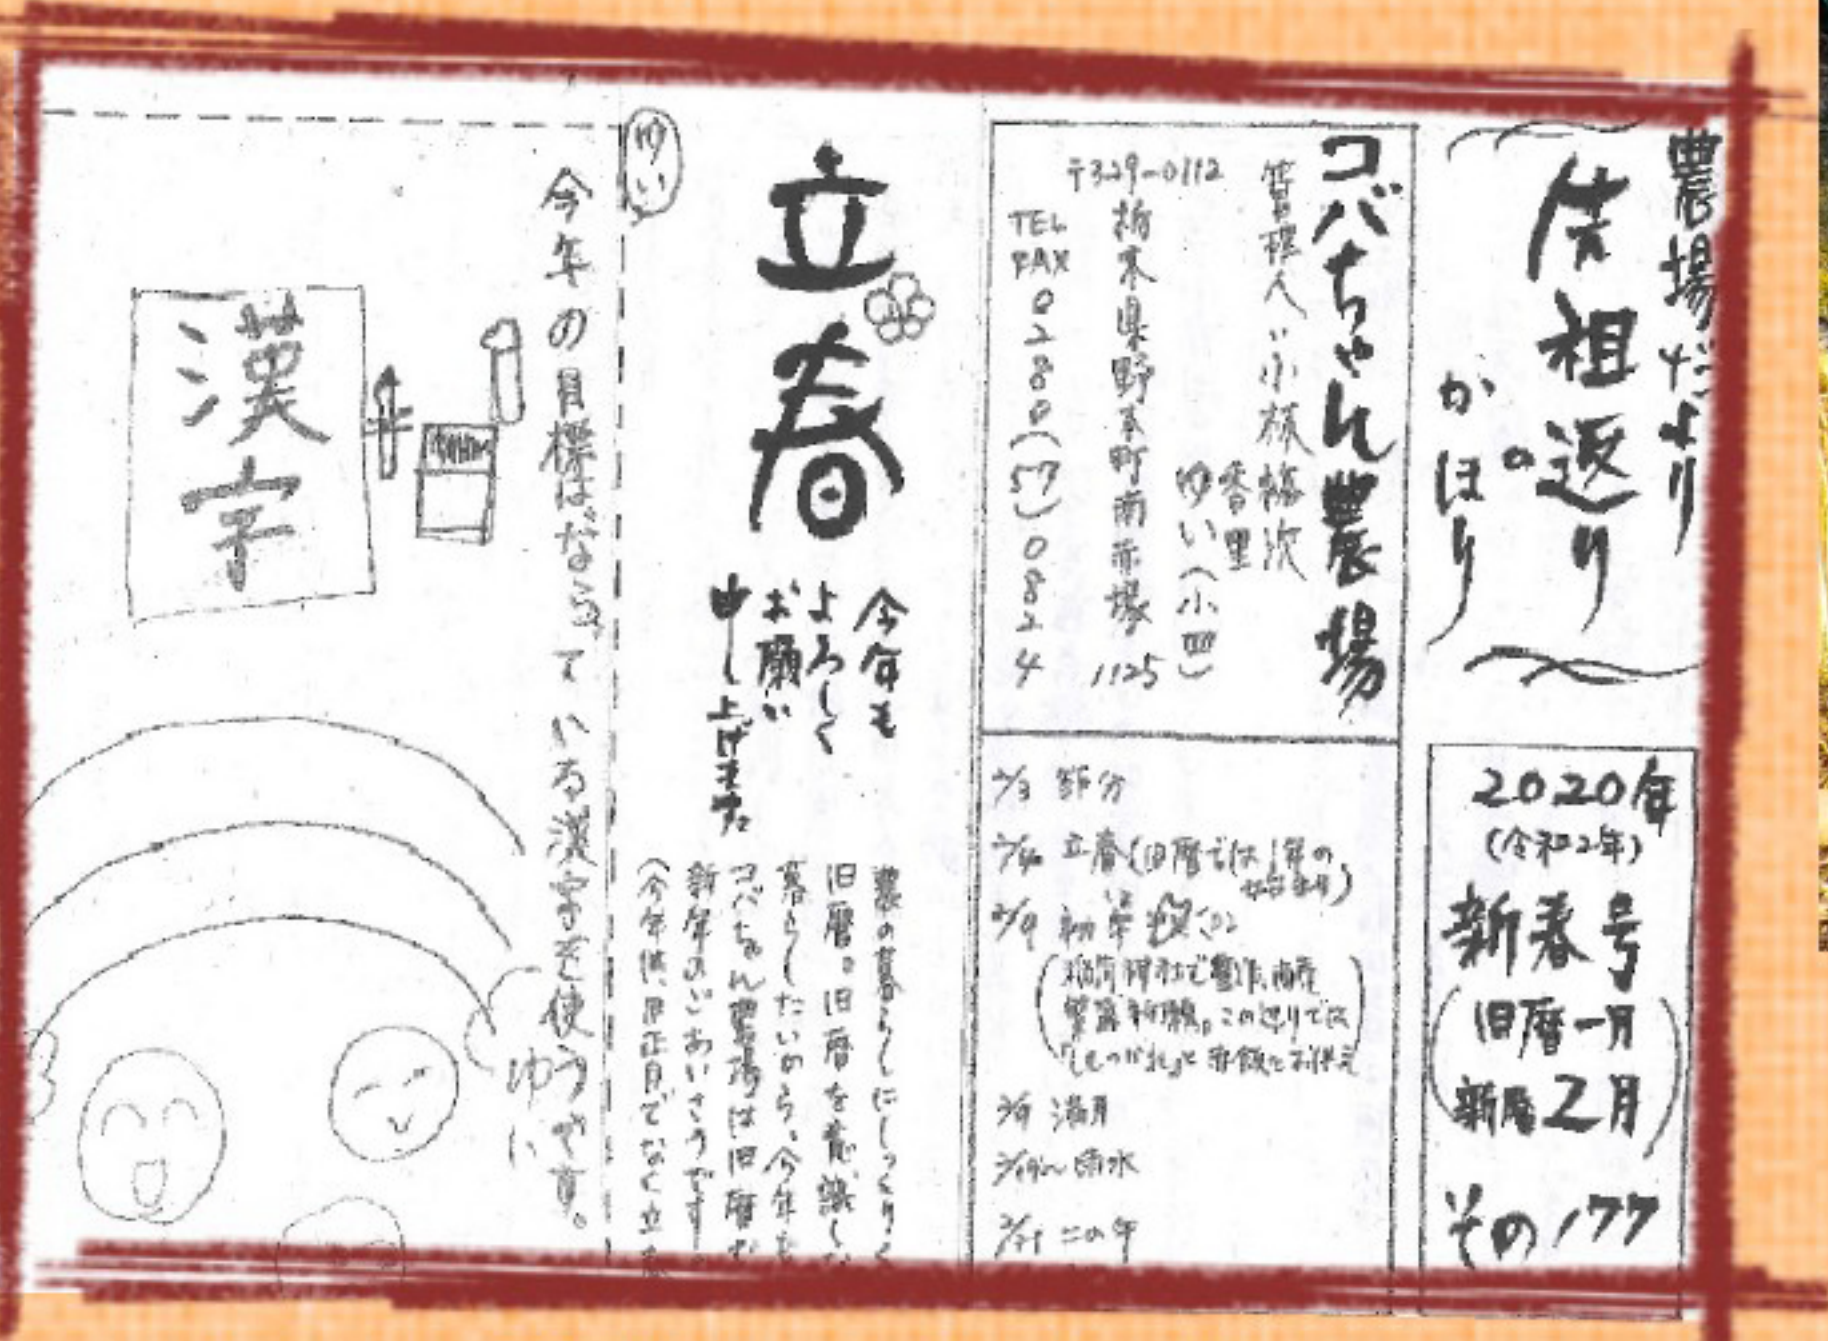 農場だより
先祖返り
の
かほり
2020年
(令和2年)
新春号
旧暦一月
新暦2月
その177
コバちゃん農場
管理人:小様
ゆい(小四)
〒329-0112
栃木県野木町南赤塚1125
TEL
FAX
0280(57)0824
2/3 節分
2/4 立春(旧暦では1年の
2/9 初午
2/9 満月
2/19〜雨水
2/21 二の午
立春
今年も
よろしく
お願い
申し上げます
農の暮らしにしっくりく
旧暦。旧暦を意識した
暮らしたいから、今年も
コバちゃん農場は旧暦
新年のごあいさつです
(今年は、旧正月でなく立春
ゆい
今年の目標はならっている漢字を使うです。
ゆい
漢字